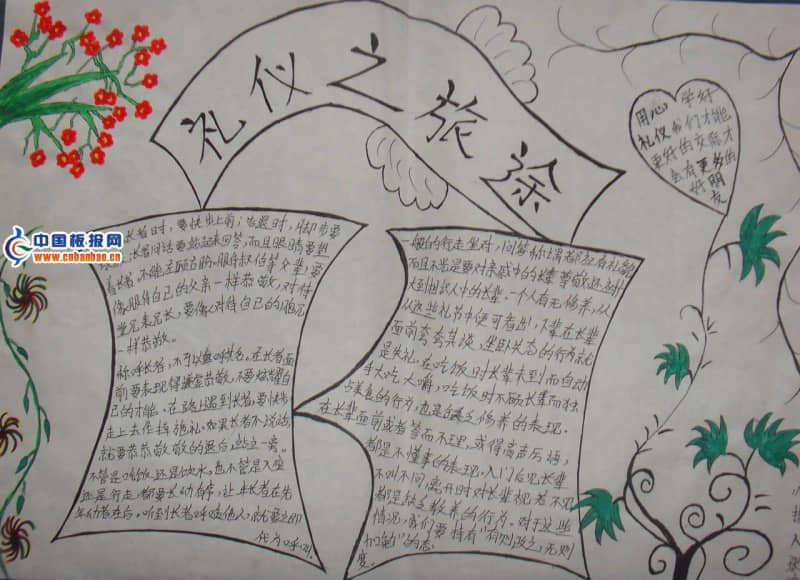 礼仪之旅途
用心学好
礼仪我们才能
更好的交流才
会有更多的
好朋
友
中国板报网
www.cnbanbao.cn
长者时,要快步上前;告退时,脚步要
长者问话要站起来回答,而且眼睛要
着长者,不能左顾右盼。服侍叔伯等父辈,要
像服侍自己的父亲一样恭敬,对待
堂兄表兄长,要像对待自己的胞兄
一样恭敬。
称呼长者,不可以直呼姓名,在长者面
前要表现得谦虚恭敬,不要炫耀自
己的才能。在路上遇到长者,要快步
走上去作揖施礼。如果长者不说话,
就要恭恭敬敬的退后
不管是吃饭还是饮水,也不管是入坐
还是行走,都要长幼有序,让年长者在先
年幼者在后。听到长者呼唤他人,就要立即
代为呼叫。
般的行走坐
而且不光是要对亲戚中的长辈尊敬
大到相识人中的长辈。一个人有无修养,从
从这些礼节中便可看出,小辈在长辈
面前夸夸其谈,坐卧失态的行为就
是失礼,在吃饭时长辈未到而自动
手大吃大嚼,吃饭时不顾长辈而独
占美食的行为,也是缺乏修养的表现。
在长辈面前或者答而不理,或得高声厉语,
都是不懂事的表现,入门后见长辈
不叫不问,离开时对长辈视若不见
都是缺乏教养的行为。对于这些
情况,我们要持有“有则改之,无则
加勉”的态
度。